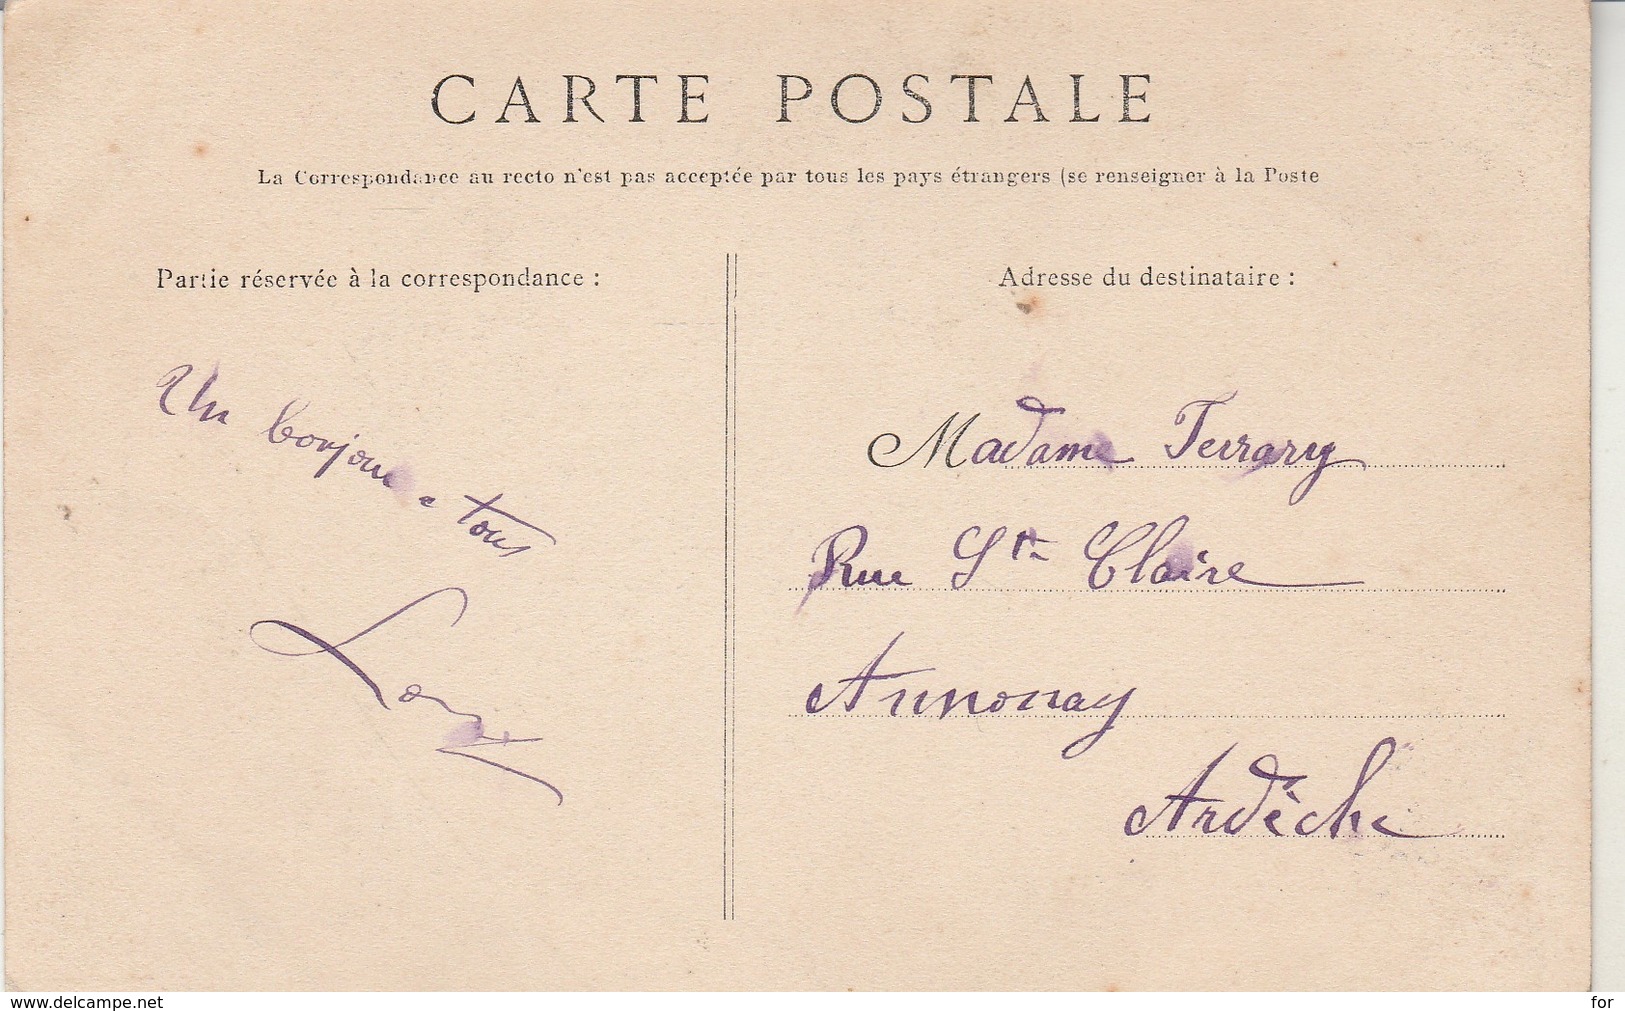 CARTE POSTALE
La Correspondance au recto n'est pas acceptée par tous les pays étrangers (se renseigner à la Poste
Partie réservée à la correspondance :
Un bonjour a tous
Adresse du destinataire :
Madame
Rue Ste Claire
Annonay
Ardèche
www.delcampe.net
for